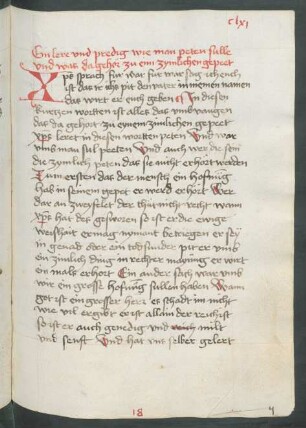 clxi
Ein lere vnd predig wie man peten sulle
vnd was da gehor zu eim zymlichen gepet
Xps sprach fur war fur war sag ich euch
ist das ir ichs pit den vater in meinem namen
das wirt er euch geben In diesen
kurtzen worten ist alles das
das da gehort zu eynem zimlichen gepet
xps leret in diesen worten peten Vnd war
vmb man sul peten Vnd auch wer die sein
die zymlich peten das sie nicht erhort werden
Zum ersten das der mensch ein hofnung
hab in seinem gepet er werd erhort Wer
dar an zweyfelt der thut nicht recht wann
xps hat des gesworen so ist er die ewige
weisheit er mag nymant betriegen er sey
in genad oder ein todsunder pit er vmb
ein zimlich ding in rechter maynung er wirt
ein mals erhort Ein ander sach war vmb
wir ein grosse hofnung sullen haben Wann
got ist ein grosser herr es schadt im nicht
wie vil er gibt er ist allain der reich ist
so ist er auch genedig vnd milt
vnd senft Vnd hat vns selber gelert
18